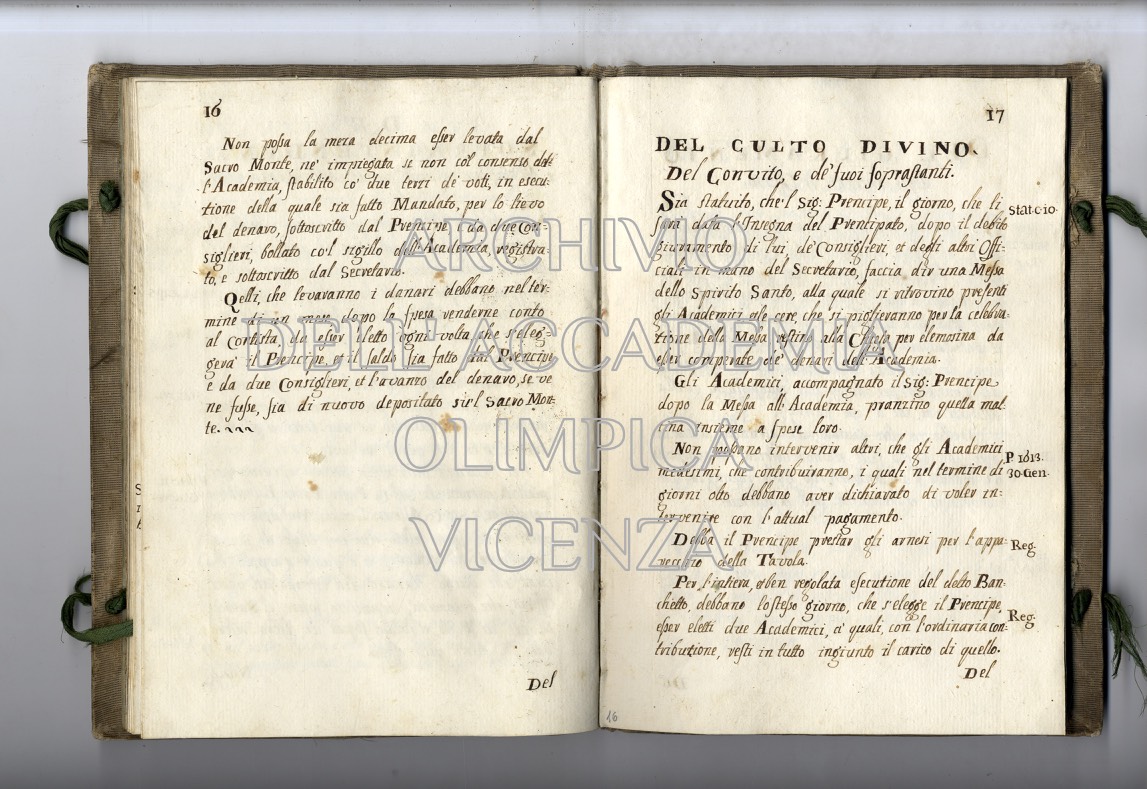 16
Non possa la meza decima esser levata dal
Sacro Monte, ne' impiegata se non col consenso del-
l'Academia, stabilito co' due terzi de' voti, in esecu:
tione della quale sia fatto Mandato, per lo lievo
del denaro, sottoscritto dal Prencipe, e da due Con:
siglieri, bollato co'l sigillo dell'Academia registra:
to, e sottoscritto dal Secretario.
Qelli, che levaranno i danari debbano nel ter:
mine di un mese dopo la spesa renderne conto
al Contista, da esser eletto ogni volta che s'eleg:
gerà il Prencipe, et il saldo sia fatto dal Prencipe
e da due Consiglieri, et l'avanzo del denaro, se ve
ne fusse, sia di nuovo depositato su'l Sacro Mon:
te.
Del
17
DEL CULTO DIVINO.
Del Convito, e de' suoi soprastanti.
Sia statuito, che'l Sig: Prencipe, il giorno, che li
sarà data l'Insegna del Prentipato, dopo il debito
giuramento di lui, de' Consiglieri, et degli altri Offi:
ciali in mano del Secretario, faccia dir una Messa
dello Spirito Santo, alla quale si ritrovino presenti
gli Academici et le cere, che si piglieranno per la celebra:
tione della Messa restino alla Chiesa per elemosina da
esser comperate de' denari dell'Academia.
Gli Academici, accompagnato il Sig: Prencipe
dopo la Messa all'Academia, pranzino quella mat:
tina insieme a spese loro.
Non possano intervenir altri, che gli Academici
medesimi, che contribuiranno, i quali nel termine di
giorni otto debbano aver dichiarato di voler in:
tervenire con l'attual pagamento.
Debba il Prencipe prestar gli arnesi per l'appa:
recchio della Tavola.
Per l'intiera, et ben regolata esecutione del detto Ban:
chetto, debbano lo stesso giorno, che s'elegge il Prencipe,
esser eletti due Academici, a' quali, con l'ordinaria con:
tributione, resti in tutto ingiunto il carico di quello.
Del
P 1613.
30. Gen.
Reg.
Reg.
16
ARCHIVIO
DELL'ACCADEMIA
OLIMPICA
VICENZA